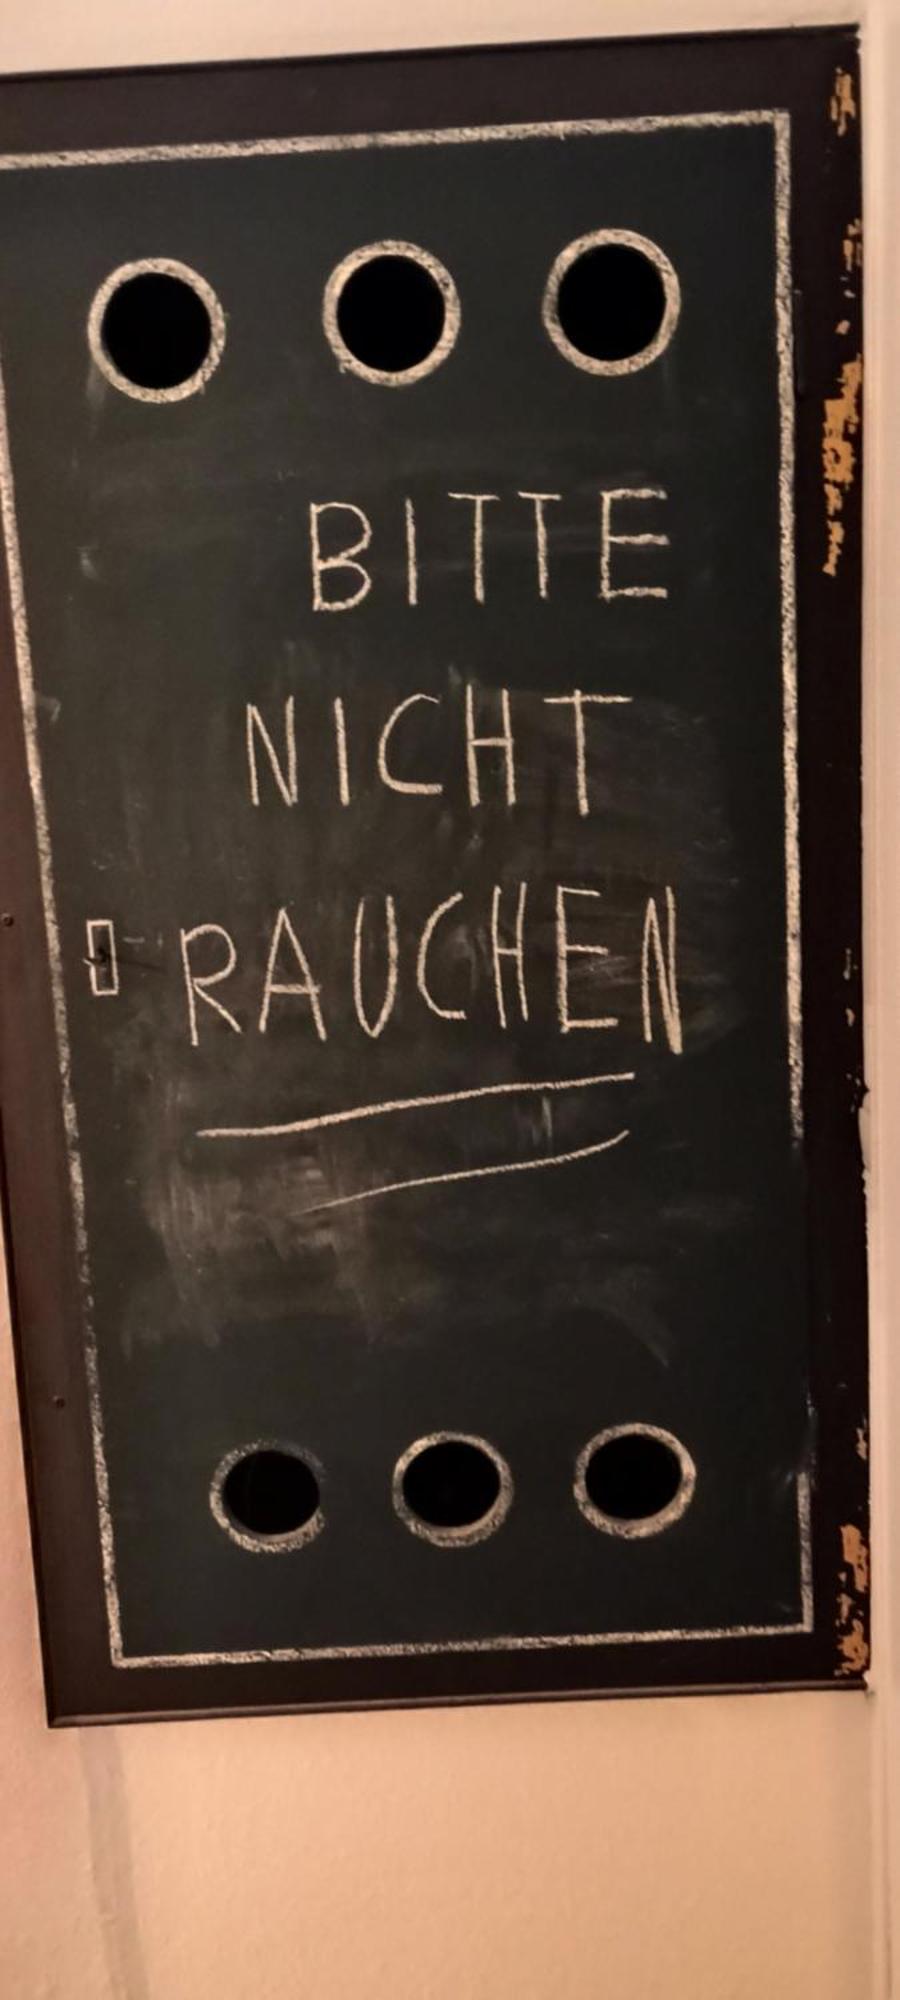 BITTE
NICHT
RAUCHEN